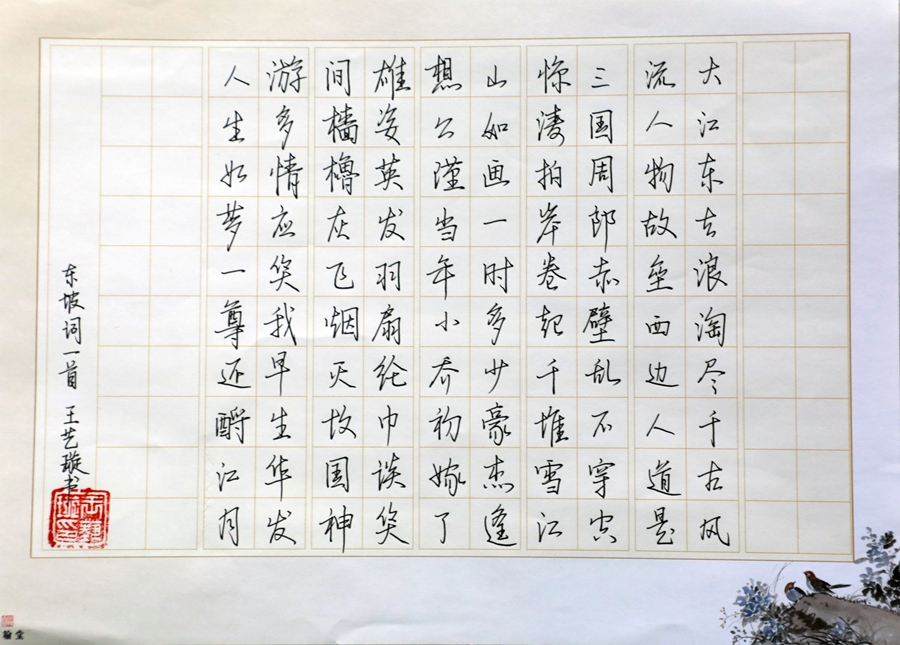 大江东去浪淘尽千古风
流人物故垒西边人道是
三国周郎赤壁乱石穿空
惊涛拍岸卷起千堆雪江
山如画一时多少豪杰遥
想公瑾当年小乔初嫁了
雄姿英发羽扇纶巾谈笑
间樯橹灰飞烟灭故国神
游多情应笑我早生华发
人生如梦一尊还酹江月
东坡词一首 王艺璇书